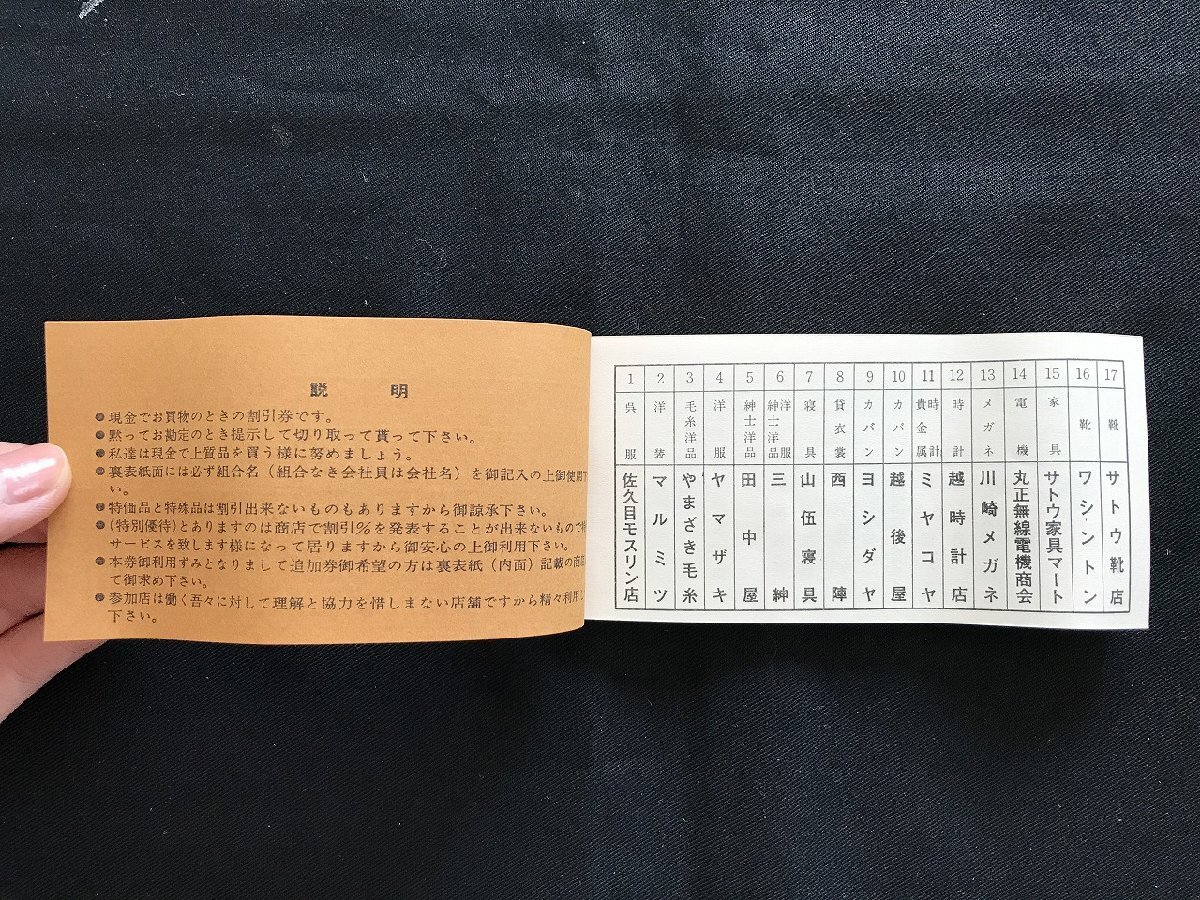 説明
●現金でお買物のときの割引券です。
●黙ってお勘定のとき提示して切り取って貰って下さい。
●私達は現金で上質品を買う様に努めましょう。
●裏表紙面には必ず組合名(組合なき会社員は会社名)を御記入の上御使用下
い。
●特価品と特殊品は割引出来ないものもありますから御諒承下さい。
●(特別優待)とありますのは商店で割引%を発表することが出来ないもので
サービスを致します様になって居りますから御安心の上御利用下さい。
●本券御利用ずみとなりまして追加券御希望の方は裏表紙(内面)記載の商
て御求め下さい。
●参加店は働く吾々に対して理解と協力を惜しまない店舗ですから精々利用
下さい。
1 呉服 佐久目モスリン店
2 洋装 マルミツ
3 毛糸洋品 やまざき毛糸
4 洋服 ヤマザキ
5 紳士洋品 田中屋
6 洋服紳士洋品 三紳
7 寝具 山伍寝具
8 貸衣裳 西陣
9 カバン ヨシダヤ
10 カバン 越後屋
11 時計貴金属 ミヤコヤ
12 時計 越時計店
13 メガネ 川崎メガネ
14 電機 丸正無線電機商会
15 家具 サトウ家具マート
16 靴 ワシントン
17 靴 サトウ靴店